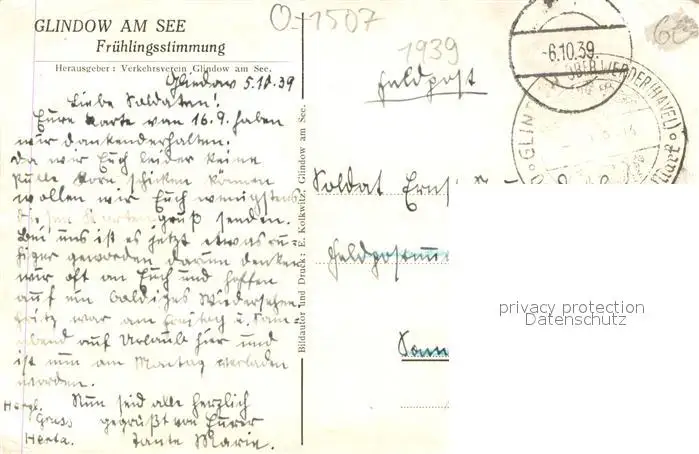 GLINDOW AM SEE
Frühlingsstimmung
Herausgeber: Verkehrsverein Glindow am See.
Glindow 5.10.39
Liebe Soldaten!
Eure Karte vom 16.9. haben
wir dankend erhalten.
Da wir Euch leider keine
Pulle Korn schicken können
wollen wir Euch wenigstens
diesen Kartengruß senden.
Bei uns ist es jetzt etwas ru-
higer geworden darum denken
wir oft an Euch und hoffen
auf ein baldiges Wiedersehen.
Fritz war am Freitag u. Sonn-
abend auf Urlaub hier und
ist nun am Montag verladen
worden.
Nun seid alle herzlich
gegrüßt von Eurer
Tante Marie.
Herzl.
Gruss
Herta.
Bildautor und Druck: E. Kolkwitz, Glindow am See.
O-1507
1939
Feldpost
-6.10.39
ÜBER WERDER (HAVEL)
GLIND
Soldat Erns
Feldpostnu
privacy protection
Datenschutz